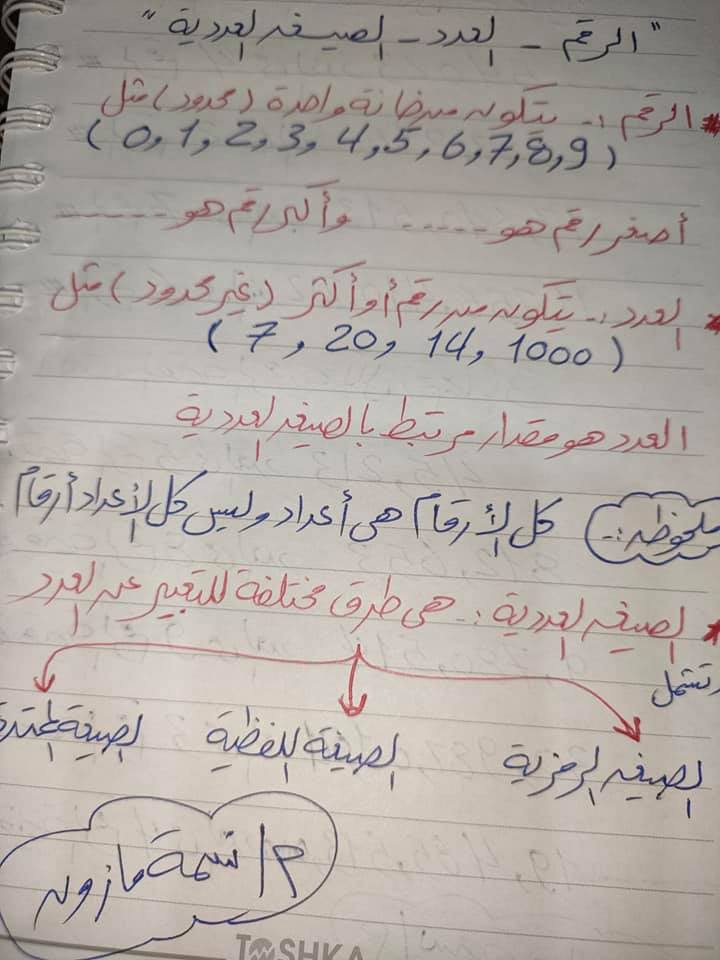 "الرقم - العدد - الصيغه العددية"
* الرقم :- يتكون من خانة واحدة (محدود) مثل
(0,1,2,3,4,5,6,7,8,9)
أصغر رقم هو ...... وأكبر رقم هو ......
* العدد :- يتكون من رقم أو أكثر (غير محدود) مثل
(7, 20, 14, 1000)
العدد هو مقدار مرتبط بالصيغه العددية
ملحوظه :- كل الأرقام هى أعداد وليس كل الأعداد أرقام
* الصيغه العددية :- هى طرق مختلفة للتعبير عن العدد
وتشمل
الصيغه الرمزية الصيغة اللفظية الصيغة الممتدة
م/ نسمة مازون
TOSHKA